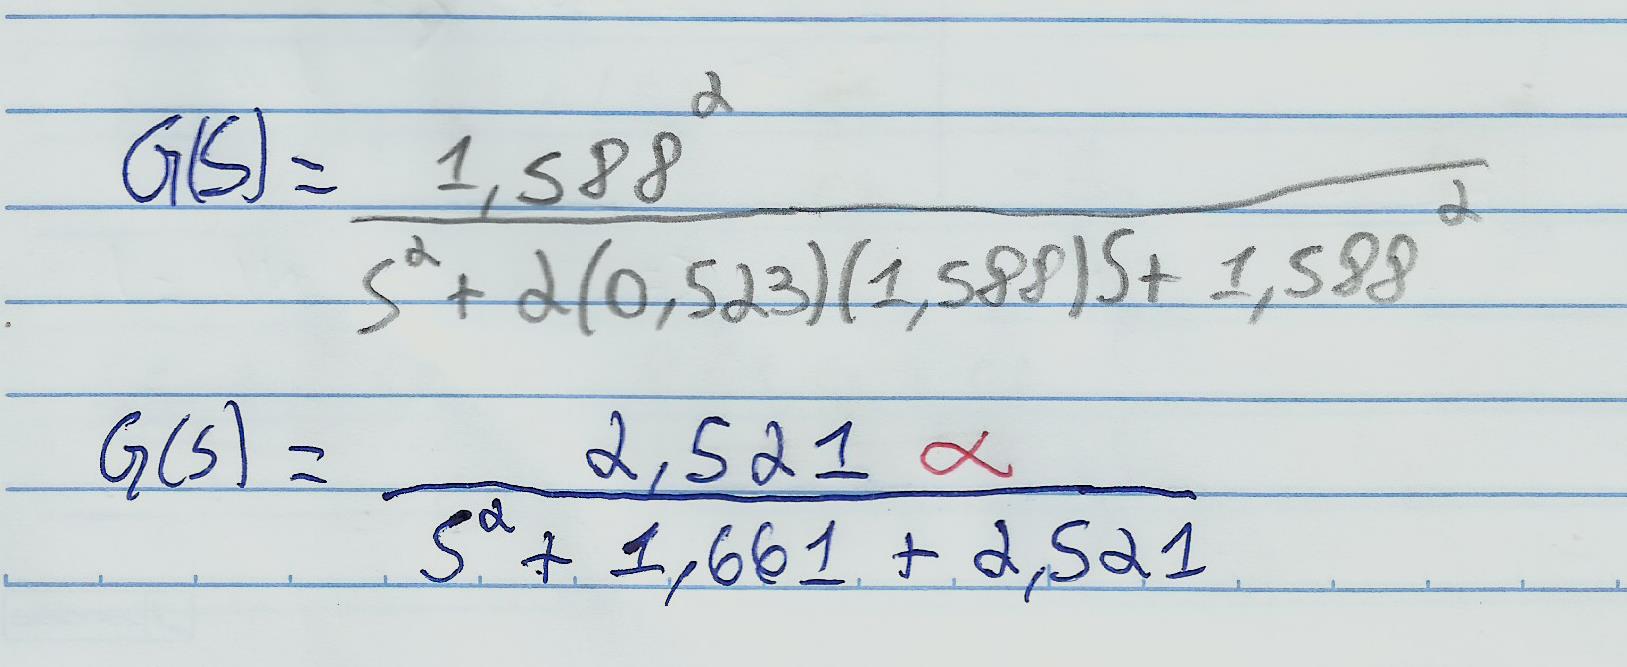 G(S) = 1,588²
S² + 2(0,523)(1,588)S + 1,588²
G(S) = 2,521 α
S² + 1,661 + 2,521